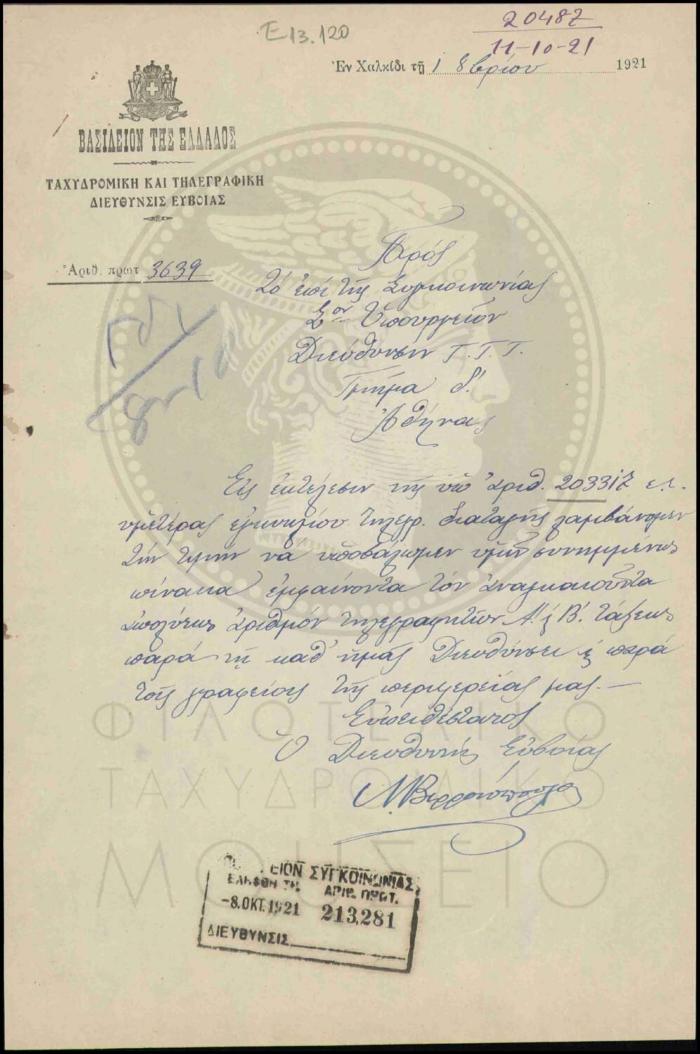 Ε13.120
20487
11-10-21
Ἐν Χαλκίδι τῇ 1 8βρίου 1921
ΒΑΣΙΛΕΙΟΝ ΤΗΣ ΕΛΛΑΔΟΣ
ΤΑΧΥΔΡΟΜΙΚΗ ΚΑΙ ΤΗΛΕΓΡΑΦΙΚΗ
ΔΙΕΥΘΥΝΣΙΣ ΕΥΒΟΙΑΣ
Ἀριθ. πρωτ 3639
Πρὸς
Τὸ ἐπὶ τῆς Συγκοινωνίας
Σον Ὑπουργεῖον
Διεύθυνσιν Τ.Τ.Τ.
Τμῆμα Δ'
Ἀθήνας
Εἰς ἐκτέλεσιν τῆς ὑπ' ἀριθ. 203317 ἐ.ἔ.
ὑμετέρας τηλεγρ. διαταγῆς λαμβάνομεν
τὴν τιμὴν νὰ ὑποβάλωμεν ὑμῖν συνημμένως
πίνακα ἐμφαίνοντα τὸν ἀναγκαιοῦντα
ἀπολύτως ἀριθμὸν τηλεγραφητῶν Α' ἢ Β' τάξεως
παρὰ τῇ καθ' ἡμᾶς Διευθύνσει ἢ παρὰ
τοῖς γραφείοις τῆς περιφερείας μας.—
Εὐπειθέστατος
Ὁ Διευθυντὴς Εὐβοίας
ΦΙΛΟΤΕΛΙΚΟ
ΤΑΧΥΔΡΟΜΙΚΟ
ΜΟΥΣΕΙΟ
ΕΙΟΝ ΣΥΓΚΟΙΝΩΝΙΑΣ
ΕΛΗΦΘΗ ΤΗ ΑΡΙΘ. ΠΡΩΤ.
-8.ΟΚΤ.1921 213,281
ΔΙΕΥΘΥΝΣΙΣ